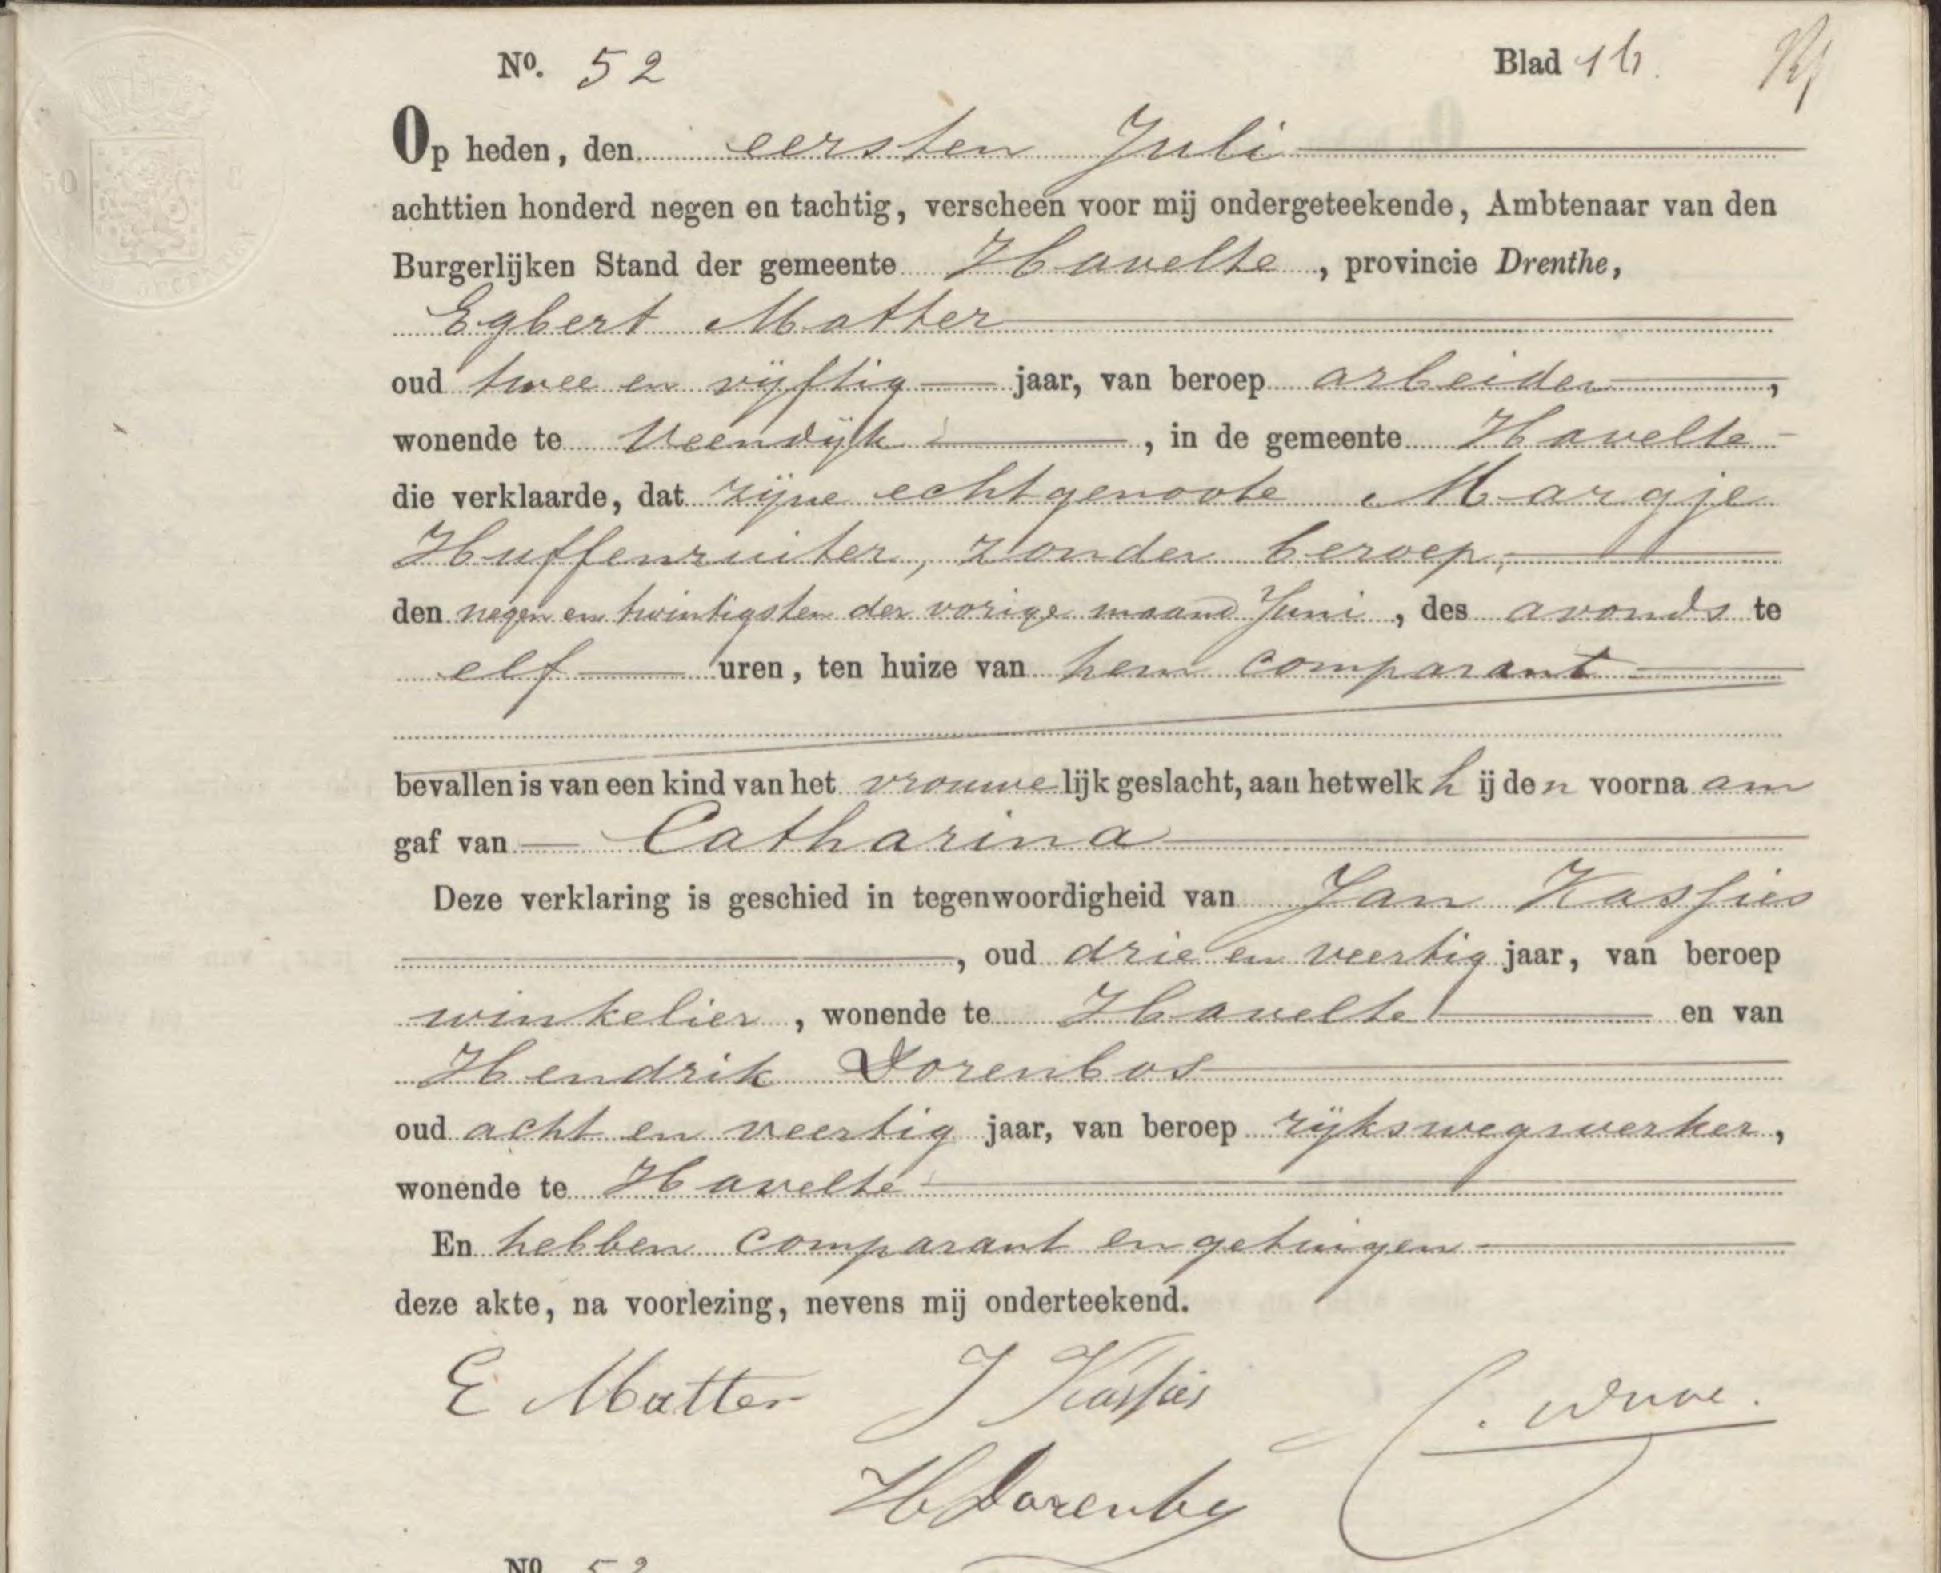 No. 52 Blad 16.
Op heden, den eersten Juli
achttien honderd negen en tachtig, verscheen voor mij ondergeteekende, Ambtenaar van den
Burgerlijken Stand der gemeente Havelte, provincie Drenthe,
Egbert Matter
oud twee en vijftig jaar, van beroep arbeider,
wonende te Veendijk, in de gemeente Havelte
die verklaarde, dat zijne echtgenoote Margje
Huffenruiter, zonder beroep,
den negen en twintigsten der vorige maand Juni, des avonds te
elf uren, ten huize van hem comparant
bevallen is van een kind van het vrouwelijk geslacht, aan hetwelk hij den voornaam
gaf van Catharina
Deze verklaring is geschied in tegenwoordigheid van Jan Kasjies
, oud drie en veertig jaar, van beroep
winkelier, wonende te Havelte en van
Hendrik Dorenbos
oud acht en veertig jaar, van beroep rijkswegwerker,
wonende te Havelte
En hebben comparant en getuigen
deze akte, na voorlezing, nevens mij onderteekend.
E Matter J Kasjies
HDorenbos
No